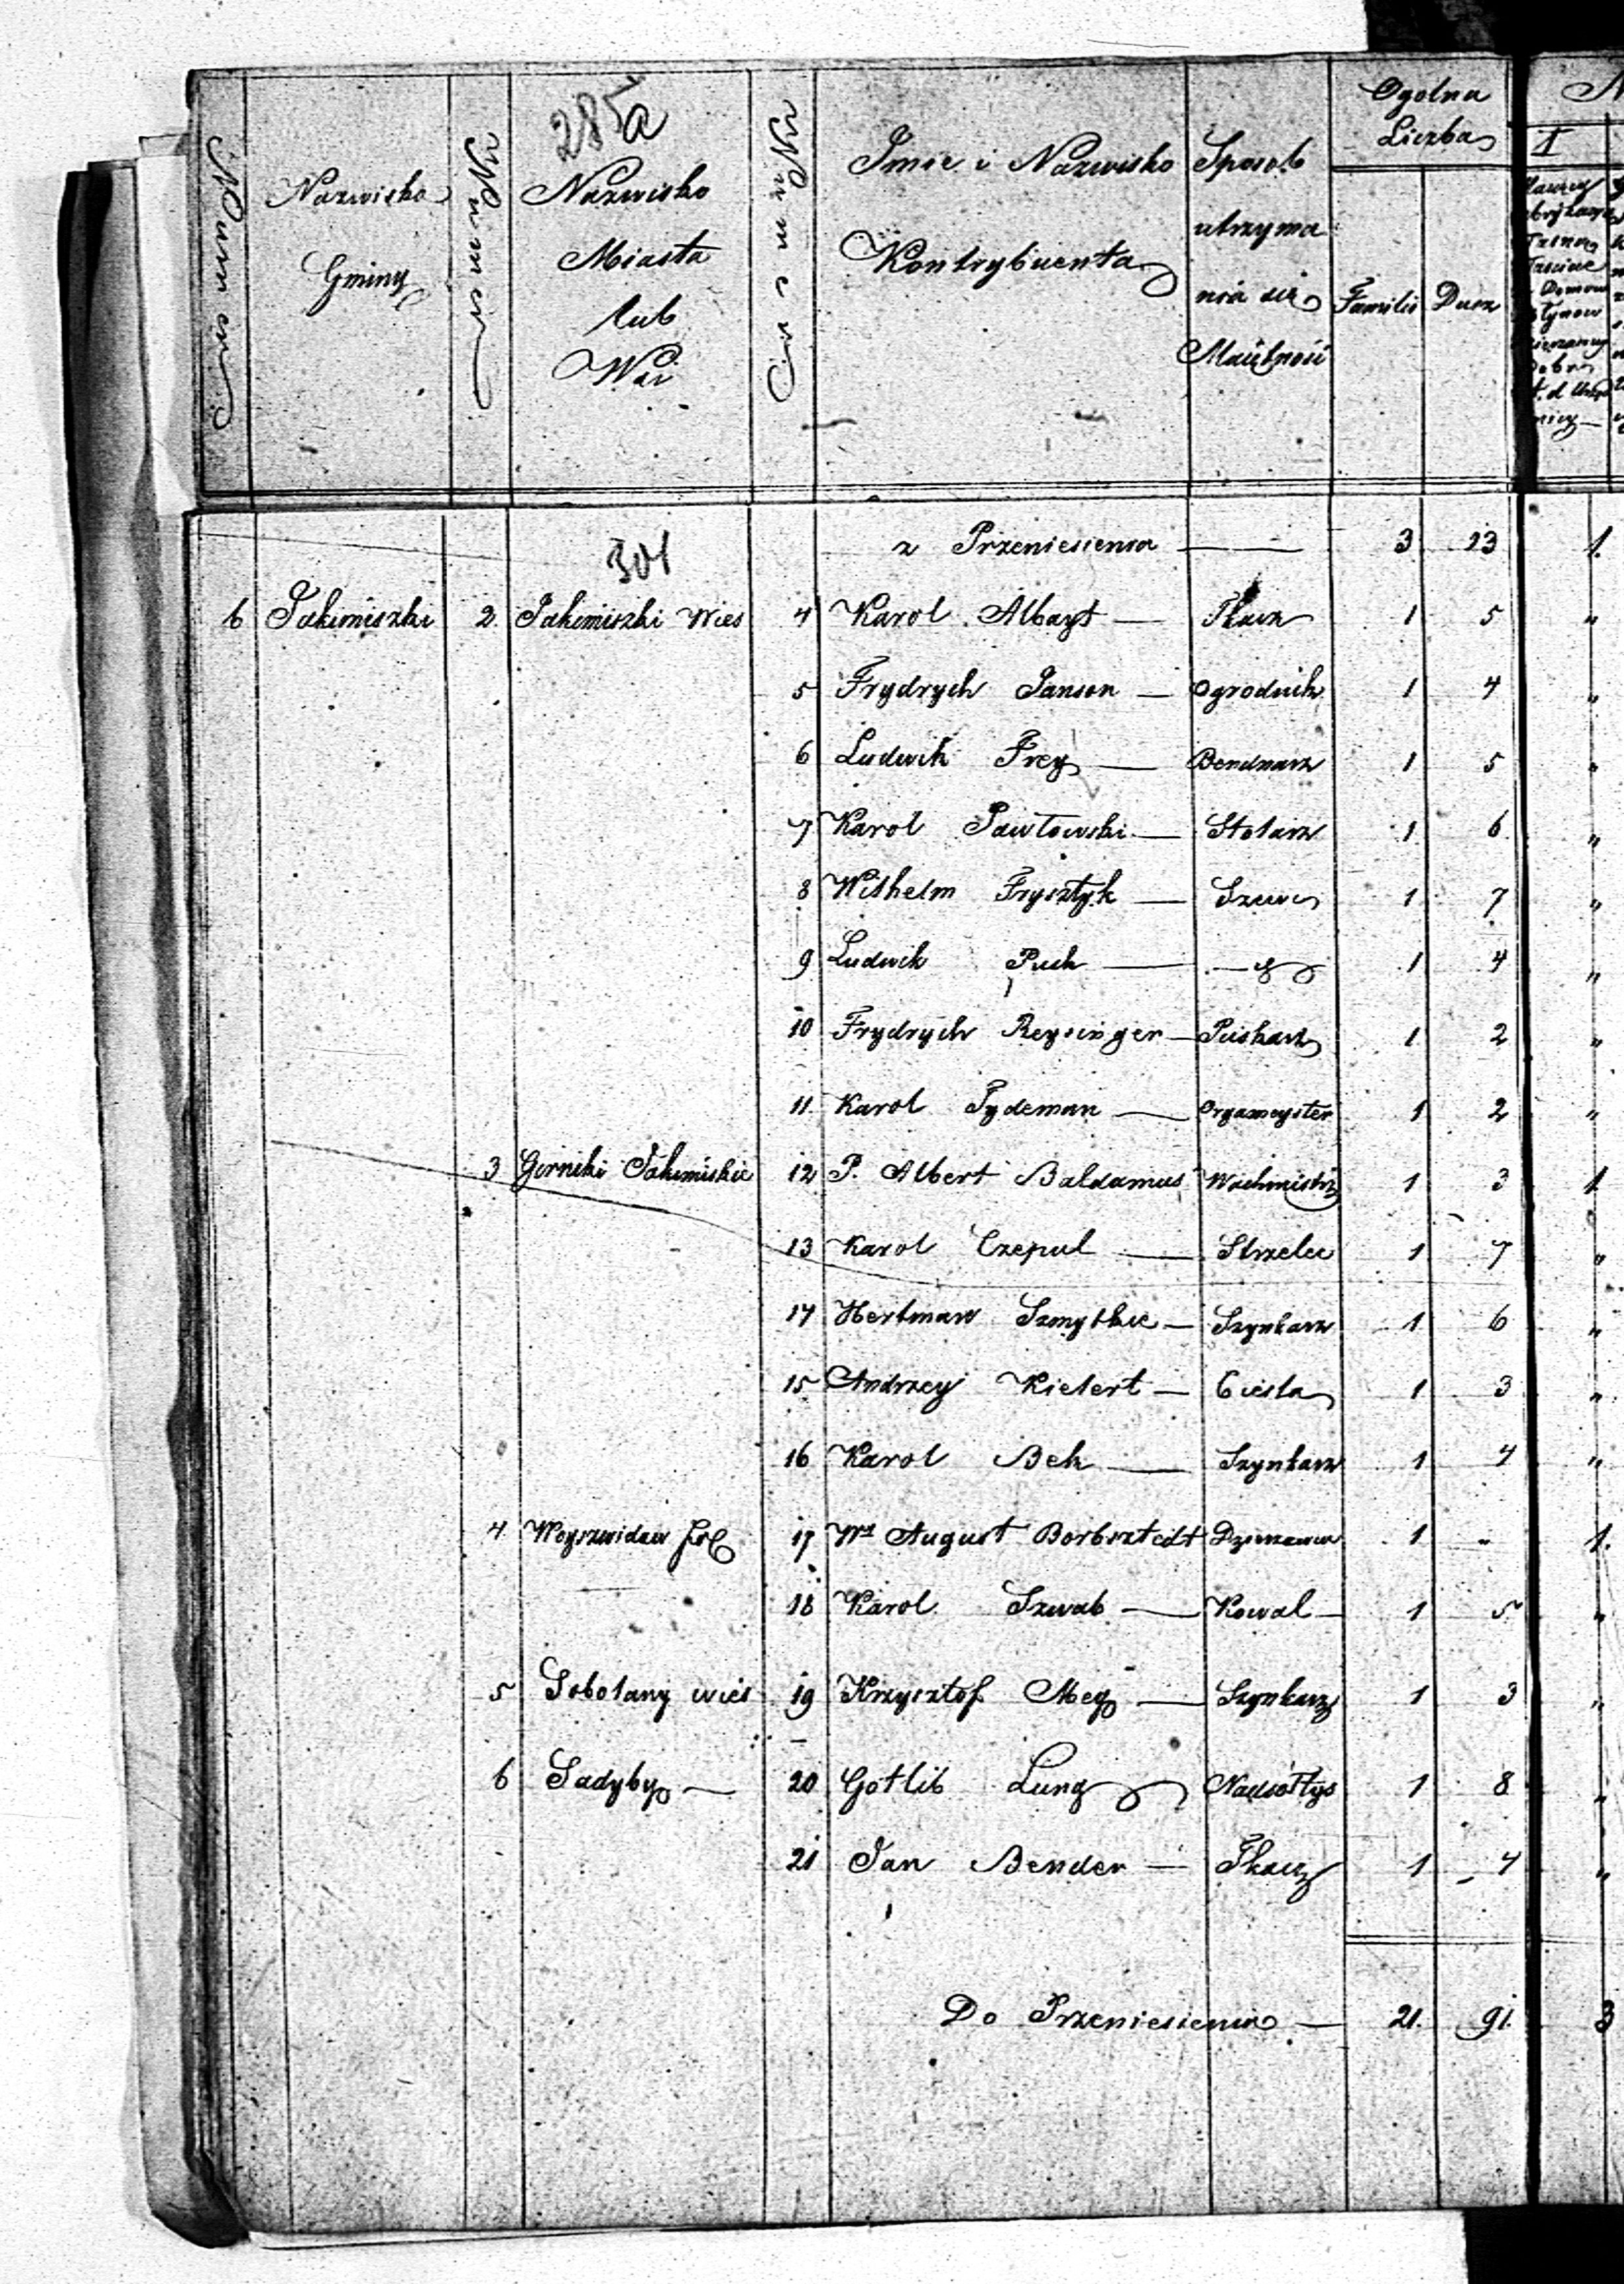 285a
Numer
Nazwisko Gminy
Numer
Nazwisko Miasta lub Wsi
Numer
Imie i Nazwisko Kontrybuenta
Sposob utrzyma nia się
Ogolna Liczba
Familii
Dusz
I
301
z Przeniesienia — 3 13 1.
6 Jakimiszki 2. Jakimiszki Wies 4 Karol Albayt — Tkacz 1 5 "
5 Frydrych Janson — Ogrodnik 1 4 "
6 Ludwik Frey — Bendnarz 1 5 "
7 Karol Pawłowski — Stolarz 1 6 "
8 Wilhelm Frysztyk — Szewc 1 7 "
9 Ludwik Puch — 1 4 "
10 Frydrych Reysinger — Piskarz 1 2 "
11. Karol Tydeman — Orgameyster 1 2 "
3 Gorniki Jakimiskie 12 P. Albert Baldamus Wachmistrz 1 3 1.
13 Karol Czepul — Strzelec 1 7 "
14 Hertman Szmytkie — Szynkarz 1 6 "
15 Andrzey Kielert — Ciesla 1 3 "
16 Karol Bek — Szynkarz 1 4 "
4 Woyszwidow fol 17 Wy August Borbsztedt Dzierzawca 1 " 1.
18 Karol Szwab — Kowal — 1 5 "
5 Sobolany wieś 19 Krzysztof Mey — Szynkarz 1 3 "
6 Sadyby — 20 Gotlib Lung 1 8 "
21 Jan Bender — Tkacz 1 4 "
Do Przeniesienia — 21. 91. 3